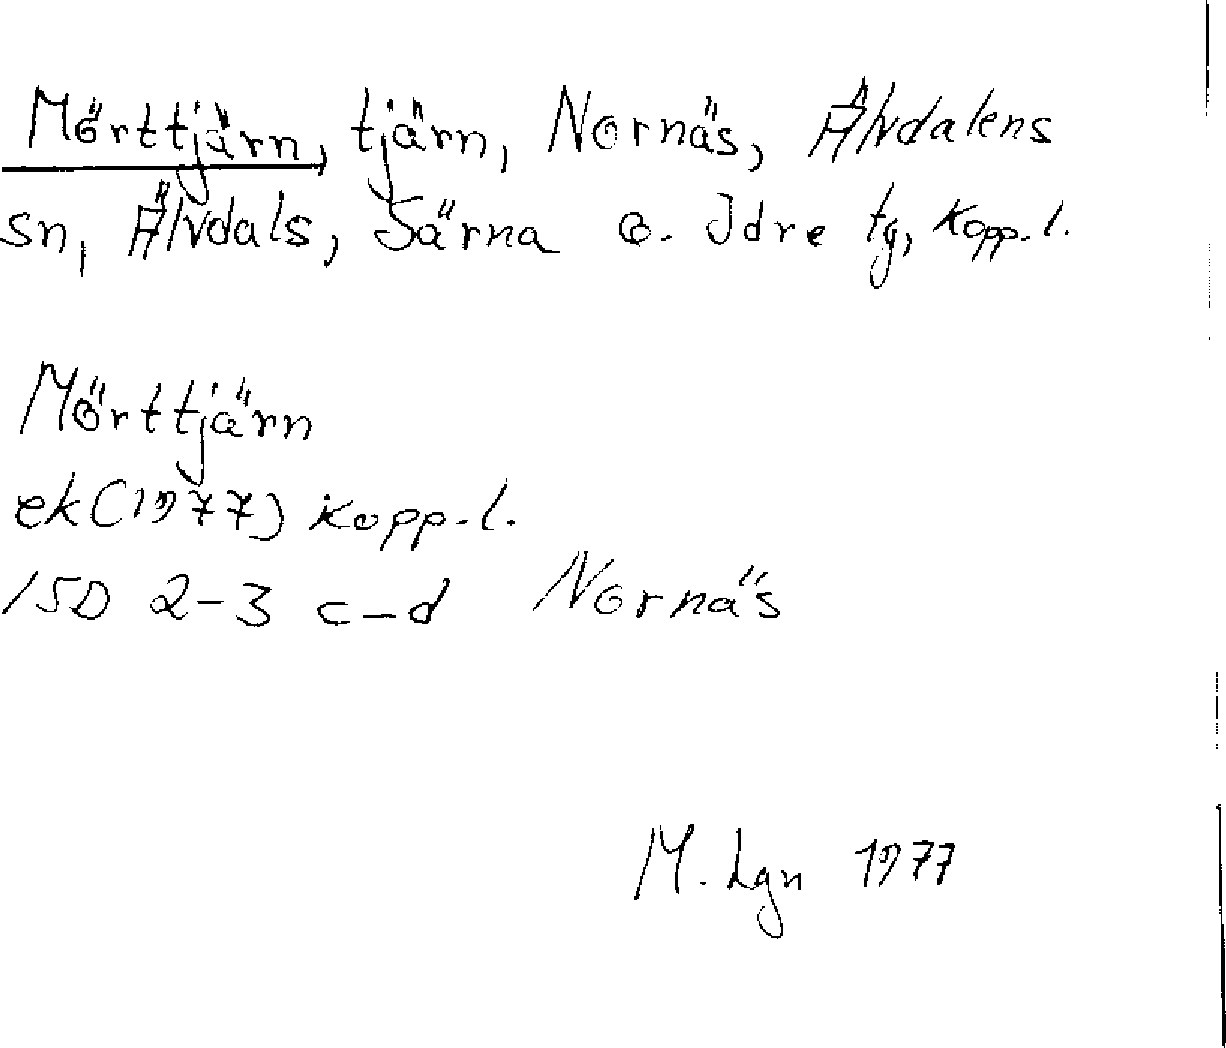 Mörttjärn, tjärn, Nornäs, Älvdalens
sn, Älvdals, Särna o. Idre tg, Kopp. l.
Mörttjärn
ek (1977) Kopp. l.
15D 2-3 c-d Nornäs
M. Lgn 1977